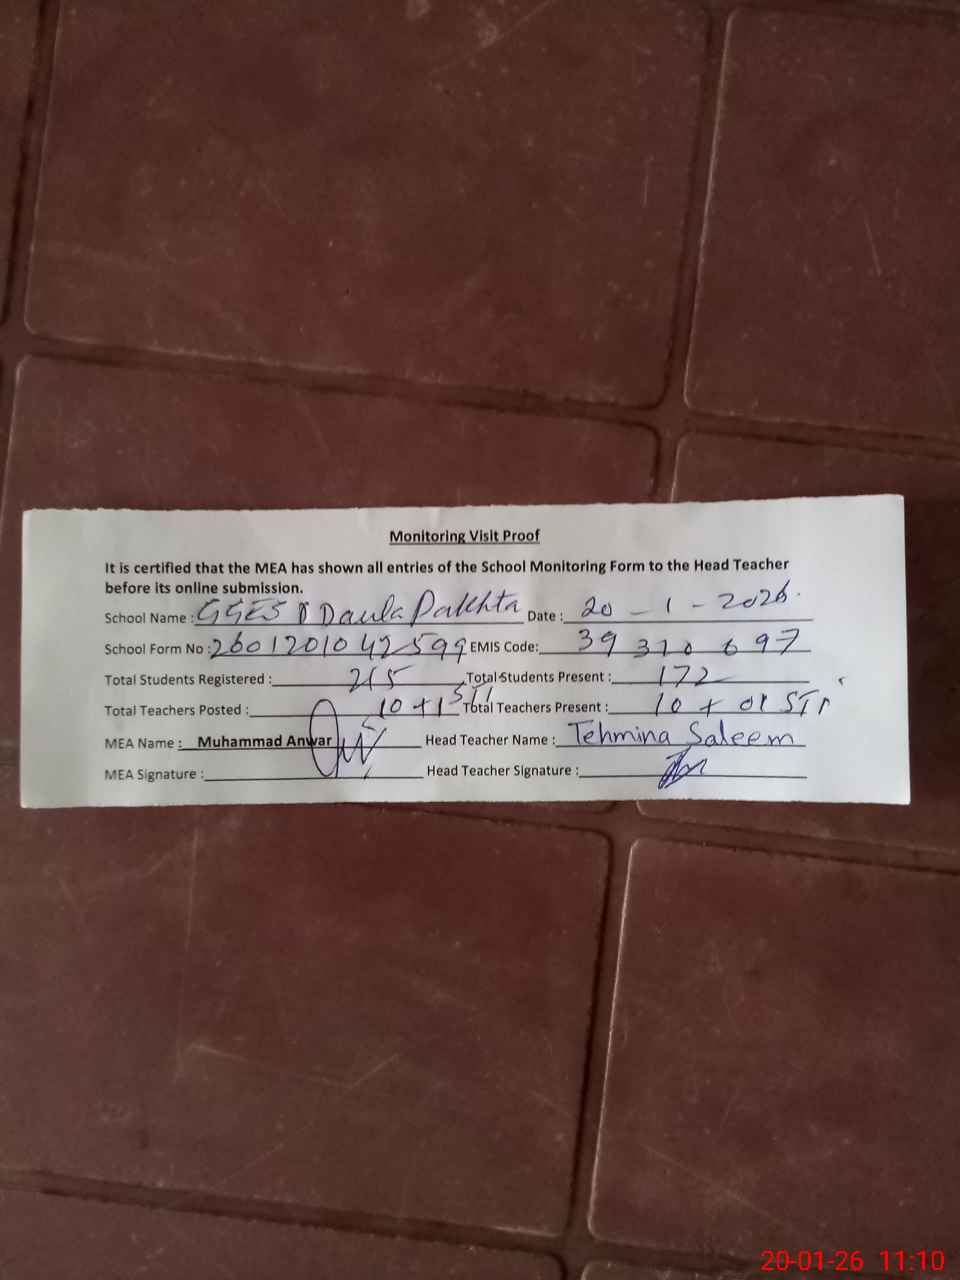 Monitoring Visit Proof
It is certified that the MEA has shown all entries of the School Monitoring Form to the Head Teacher
before its online submission.
School Name : GGES Daula Pakhta Date : 20-1-2026.
School Form No : 260120104 2599 EMIS Code: 39310697
Total Students Registered : 215 Total Students Present : 172
Total Teachers Posted : 10+1 STI Total Teachers Present : 10 + 01 STI
MEA Name : Muhammad Anwar Head Teacher Name : Tehmina Saleem
MEA Signature : Head Teacher Signature :
20-01-26 11:10